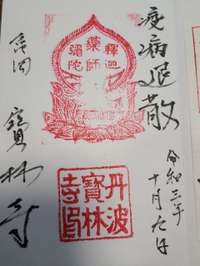 疫病退散
令和三年
十月九日
釋迦
藥師
彌陀
丹波
寶林
寺印
亀岡 寶林寺